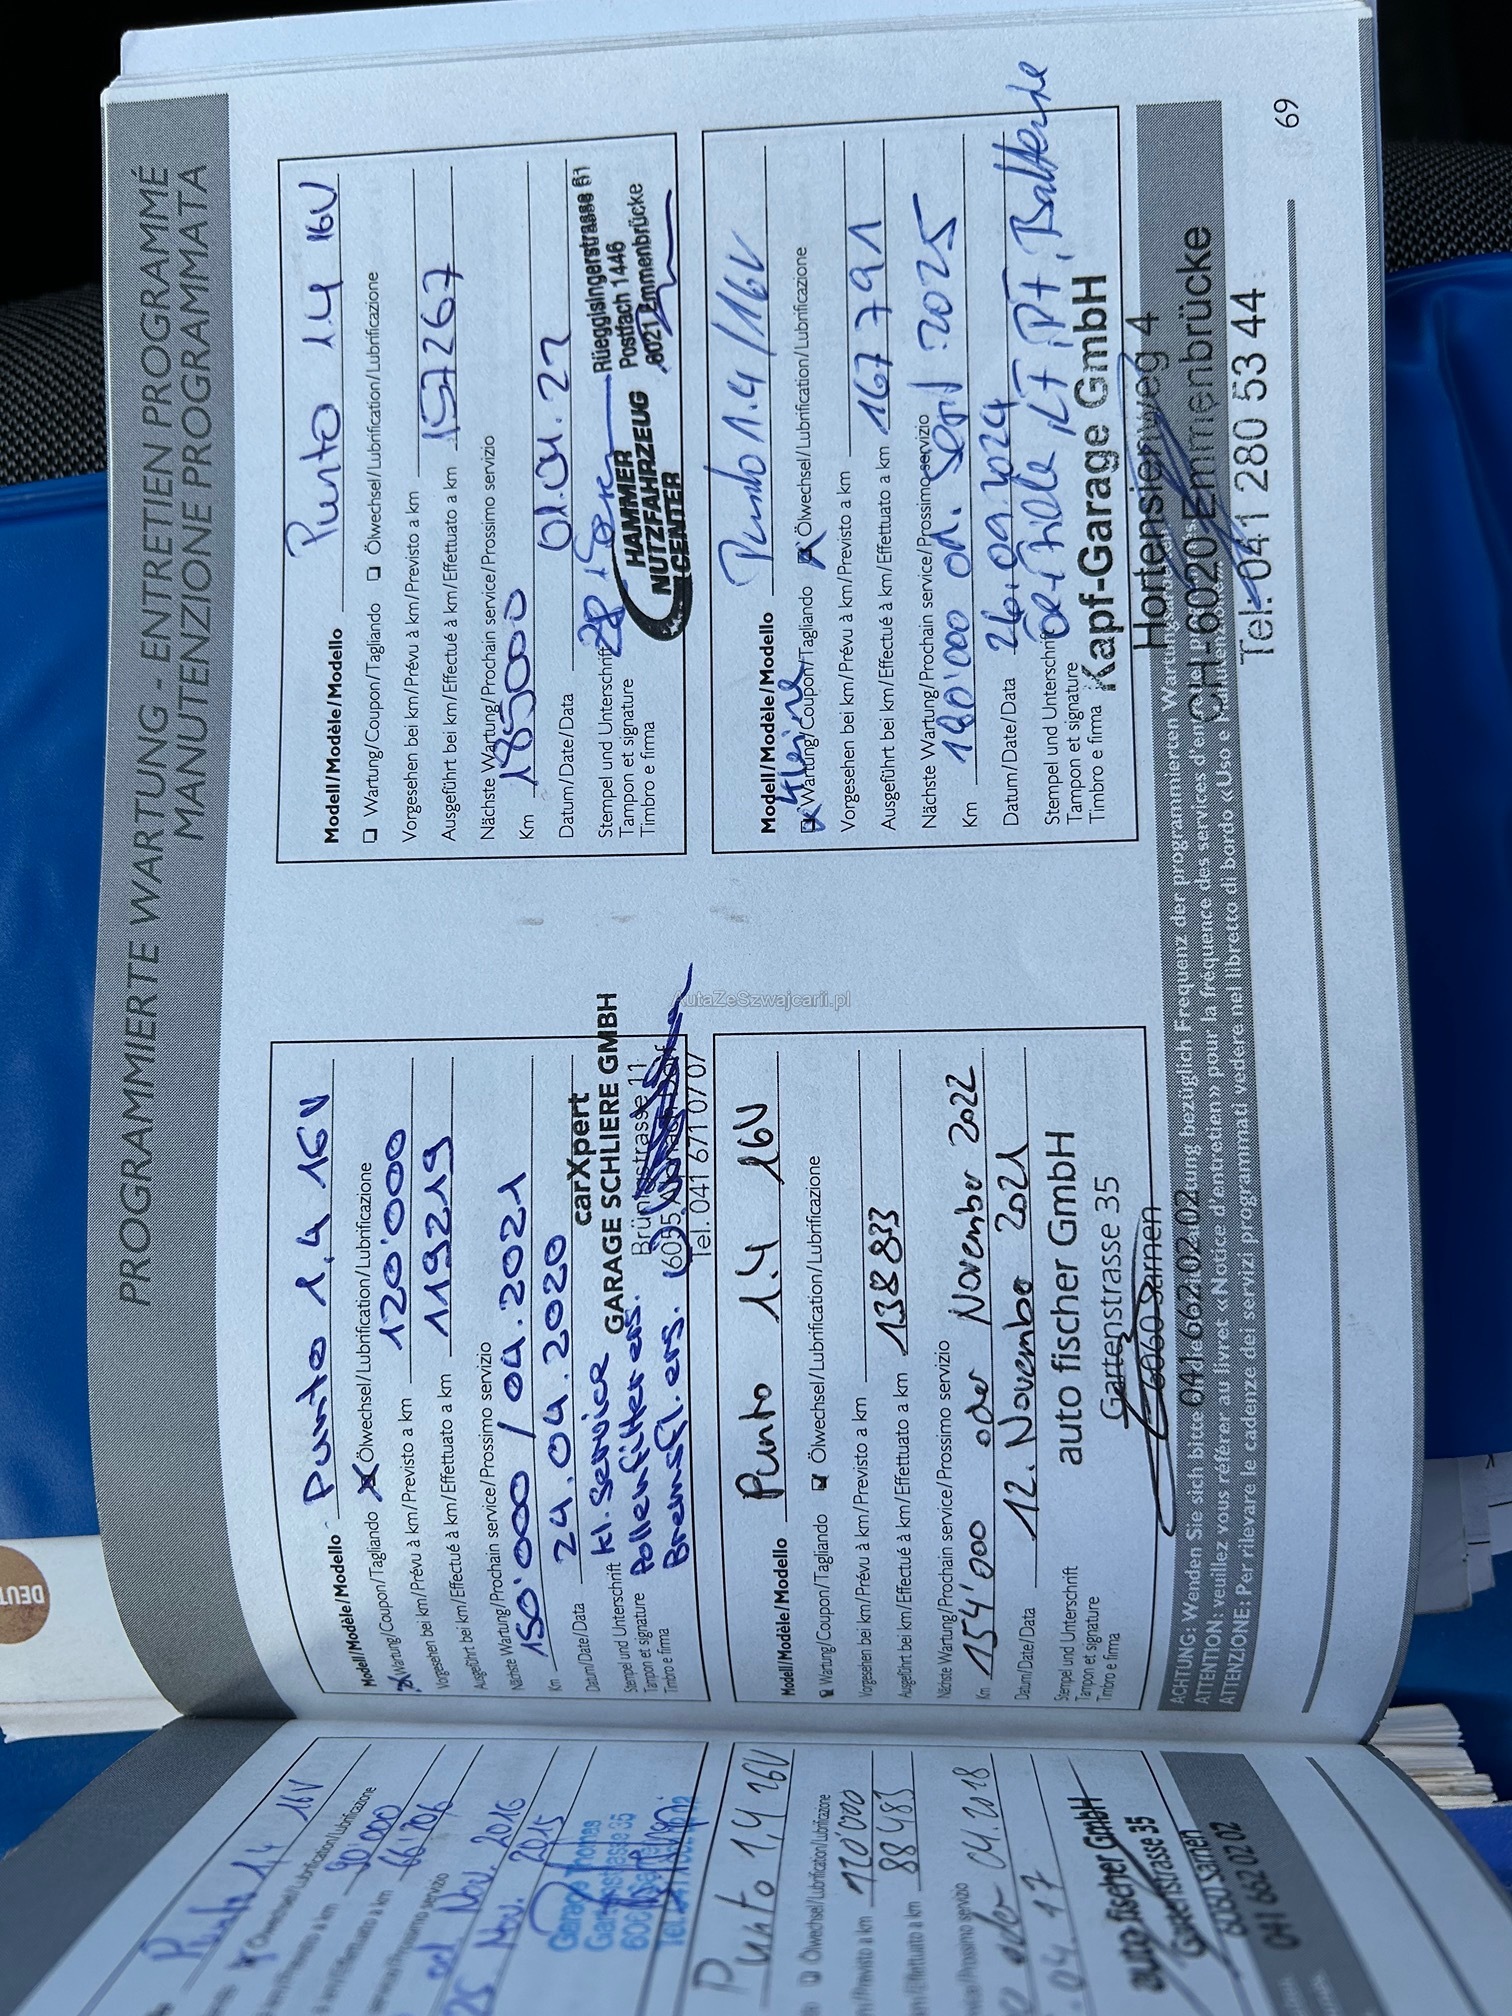 PROGRAMMIERTE WARTUNG - ENTRETIEN PROGRAMMÉ
MANUTENZIONE PROGRAMMATA
Modell/Modèle/Modello Punto 1,4 16V
Wartung/Coupon/Tagliando Ölwechsel/Lubrification/Lubrificazione
Vorgesehen bei km/Prévu à km/Previsto a km 120'000
Ausgeführt bei km/Effectué à km/Effettuato a km 119219
Nächste Wartung/Prochain service/Prossimo servizio
Km 150'000 / 04.2021
Datum/Date/Data 24.04.2020
Stempel und Unterschrift kl. Service
Tampon et signature Pollenfilter ers.
Timbro e firma Bremsfl. ers.
carXpert
GARAGE SCHLIERE GMBH
Brünigstrasse 11
6055
Tel. 041 671 07 07
Modell/Modèle/Modello Punto 1.4 16V
Wartung/Coupon/Tagliando Ölwechsel/Lubrification/Lubrificazione
Vorgesehen bei km/Prévu à km/Previsto a km
Ausgeführt bei km/Effectué à km/Effettuato a km 157267
Nächste Wartung/Prochain service/Prossimo servizio
Km 185000
Datum/Date/Data
Stempel und Unterschrift
Tampon et signature
Timbro e firma
HAMMER
NUTZFAHRZEUG
CENTER
Rüeggisingerstrasse 61
Postfach 1446
6021 Emmenbrücke
Modell/Modèle/Modello Punto 1.4 16V
Wartung/Coupon/Tagliando Ölwechsel/Lubrification/Lubrificazione
Vorgesehen bei km/Prévu à km/Previsto a km
Ausgeführt bei km/Effectué à km/Effettuato a km 138833
Nächste Wartung/Prochain service/Prossimo servizio
Km 154'000 oder November 2022
Datum/Date/Data 12. November 2021
Stempel und Unterschrift
Tampon et signature
Timbro e firma
auto fischer GmbH
Gartenstrasse 35
6060 Sarnen
041 662 02 02
Modell/Modèle/Modello Punto 1.4 / 16V
Kleine
Wartung/Coupon/Tagliando Ölwechsel/Lubrification/Lubrificazione
Vorgesehen bei km/Prévu à km/Previsto a km
Ausgeführt bei km/Effectué à km/Effettuato a km 167791
Nächste Wartung/Prochain service/Prossimo servizio
Km 180'000 od. Sept. 2025
Datum/Date/Data 26.09.2024
Stempel und Unterschrift
Tampon et signature
Timbro e firma
Kapf-Garage GmbH
Hortensienweg 4
CH-6020 Emmenbrücke
Tel: 041 280 53 44
ACHTUNG: Wenden Sie sich bitte bezüglich Frequenz der programmierten
ATTENTION: veuillez vous référer au livret «Notice d'entretien» pour la fréquence des services
ATTENZIONE: Per rilevare le cadenze dei servizi programmati vedere nel libretto di bordo «Uso e
69
AutaZeSzwajcarii.pl
DEUT
Punto 1.4 16V
Ölwechsel/Lubrification/Lubrificazione
90'000
66'706
Nov. 2016
Nov. 2015
Garage Thones
Gartenstrasse 35
Punto 1,4 16V
Ölwechsel/Lubrification/Lubrificazione
120'000
88483
04.2018
04.17
auto fischer GmbH
Gartenstrasse 35
6060 Sarnen
041 662 02 02